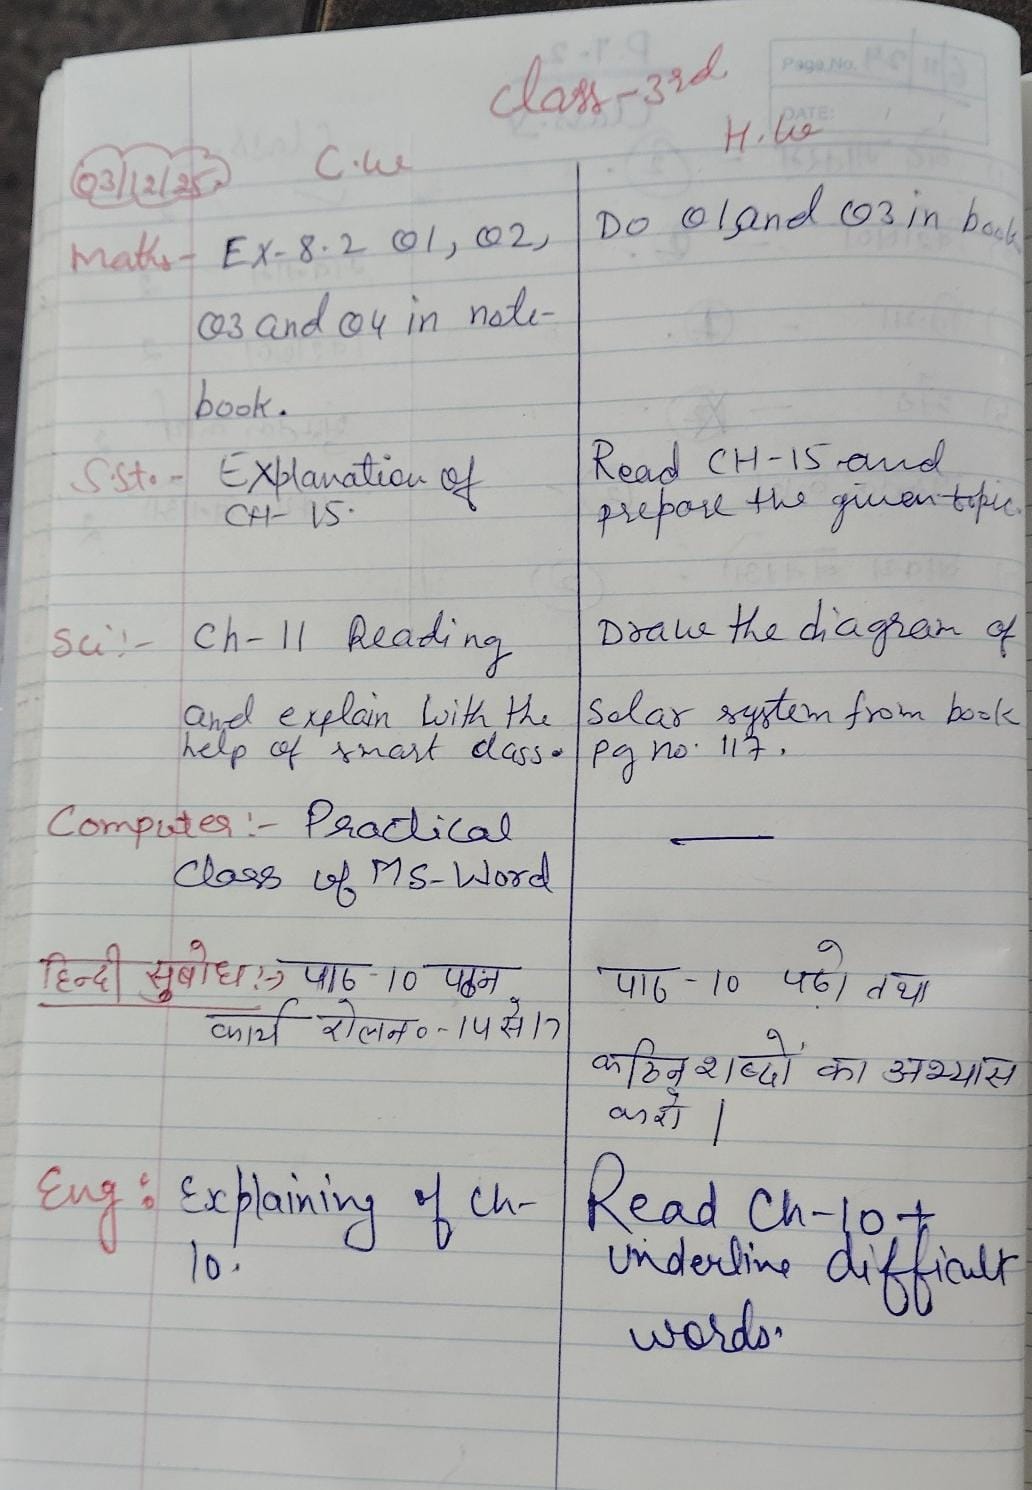 Page No.
DATE:
Class-3rd
03/12/25.
C.w
H.w
Maths- Ex-8.2 Q1, Q2,
Q3 and Q4 in note-
book.
Do Q1, and Q3 in book
S.St. - Explanation of
CH- 15.
Read CH-15 and
prepare the given topic.
Sci:- Ch-11 Reading
and explain with the
help of smart class.
Draw the diagram of
Solar system from book
pg no. 117.
Computer:- Practical
Class of MS-Word
हिन्दी सुबोध:→ पाठ-10 पठन
कार्य रोलन०-14 से 17
पाठ-10 पढ़ो तथा
कठिन शब्दों का अभ्यास
करो |
Eng: Explaining of Ch-
10.
Read Ch-10 +
underline difficult
words.